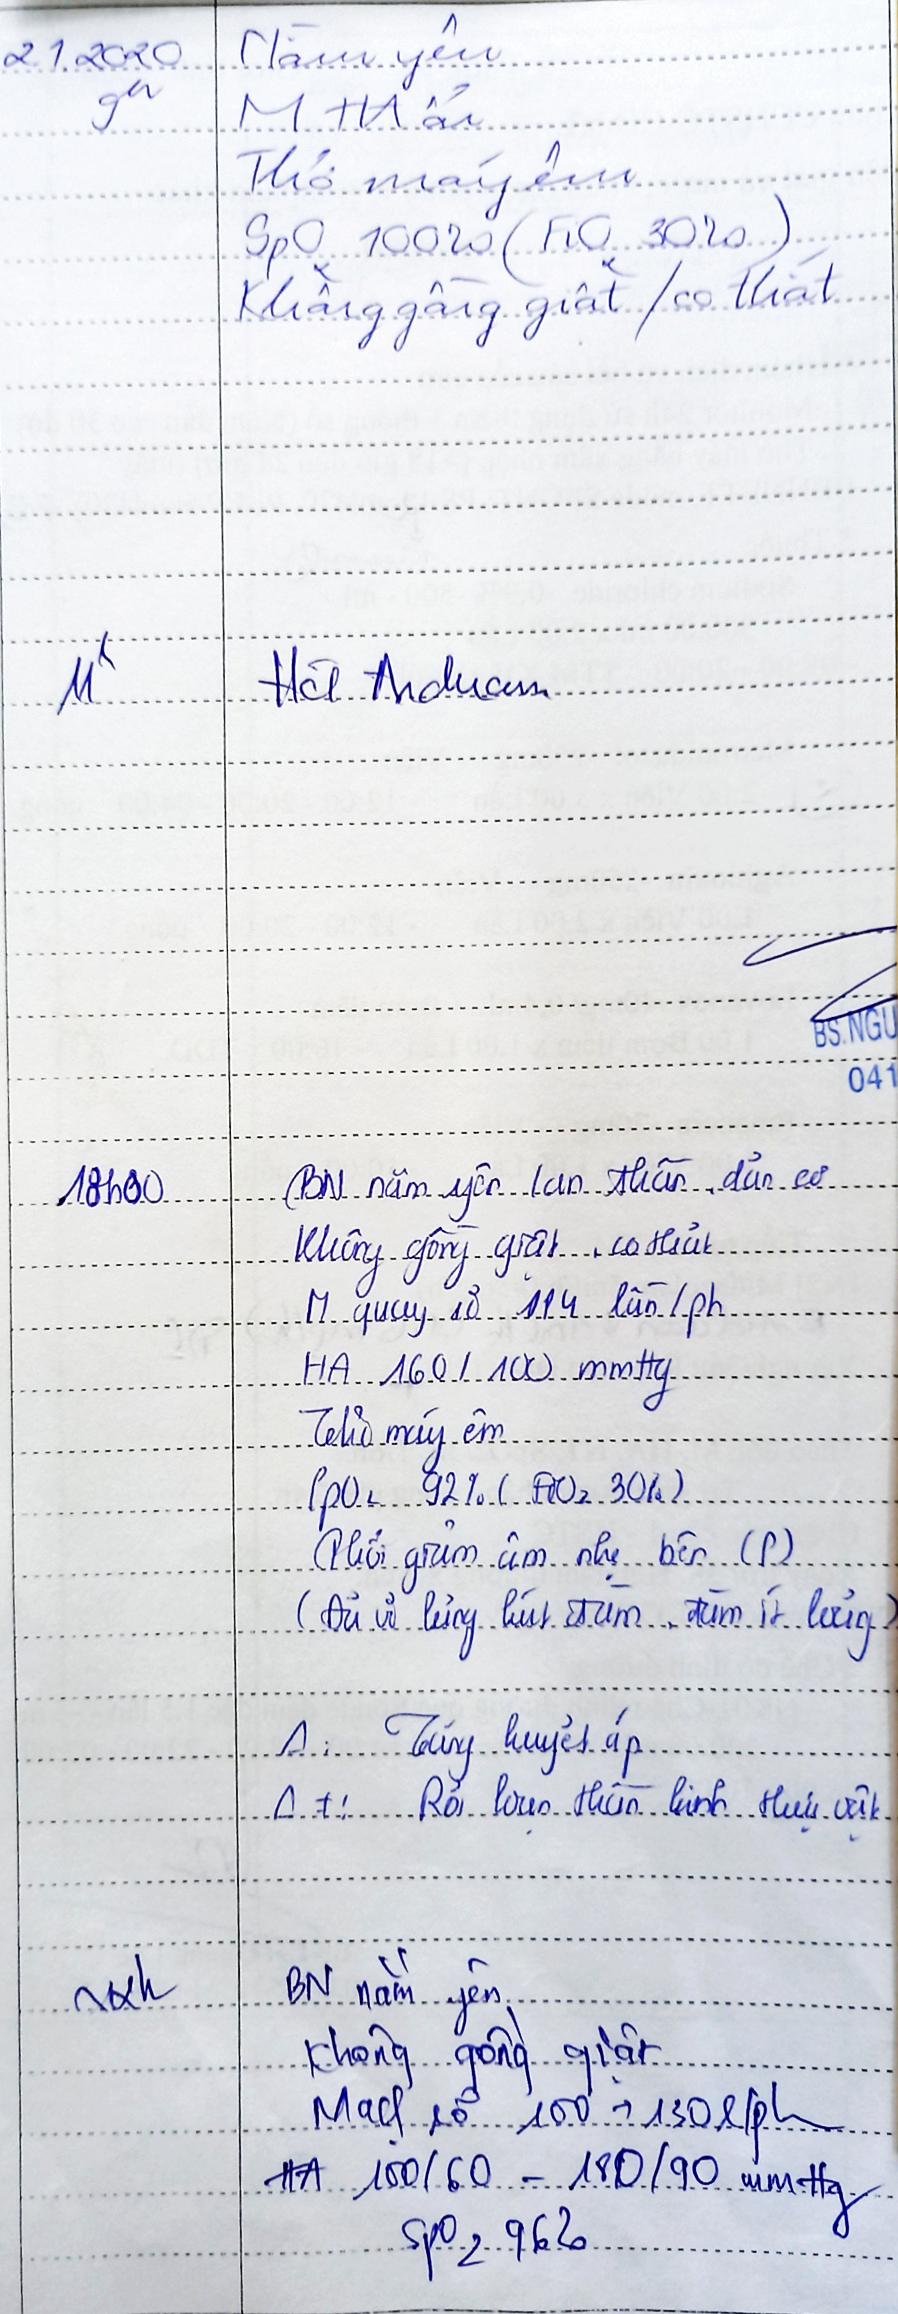 2.1.2020 Nằm yên
9h M HA ổn
Thở máy êm
SpO2 100% (FiO2 30%)
Không gồng giật / co thắt
11h Hết Arduan
BS.NGU
041
18h00 BN nằm yên, an thần, dãn cơ
Không gồng giật, co thắt
M quay rõ 114 lần/ph
HA 160/100 mmHg
Thở máy êm
SpO2 92% (FiO2 30%)
Phổi giảm âm nhẹ bên (P)
(Đã vỗ lưng hút đàm, đàm ít loãng)
Δ: Tăng huyết áp
Δ±: Rối loạn thần kinh thực vật
BN nằm yên
Không gồng giật
Mạch rõ 100 → 130 l/ph
HA 150/60 - 180/90 mmHg
SpO2 96%